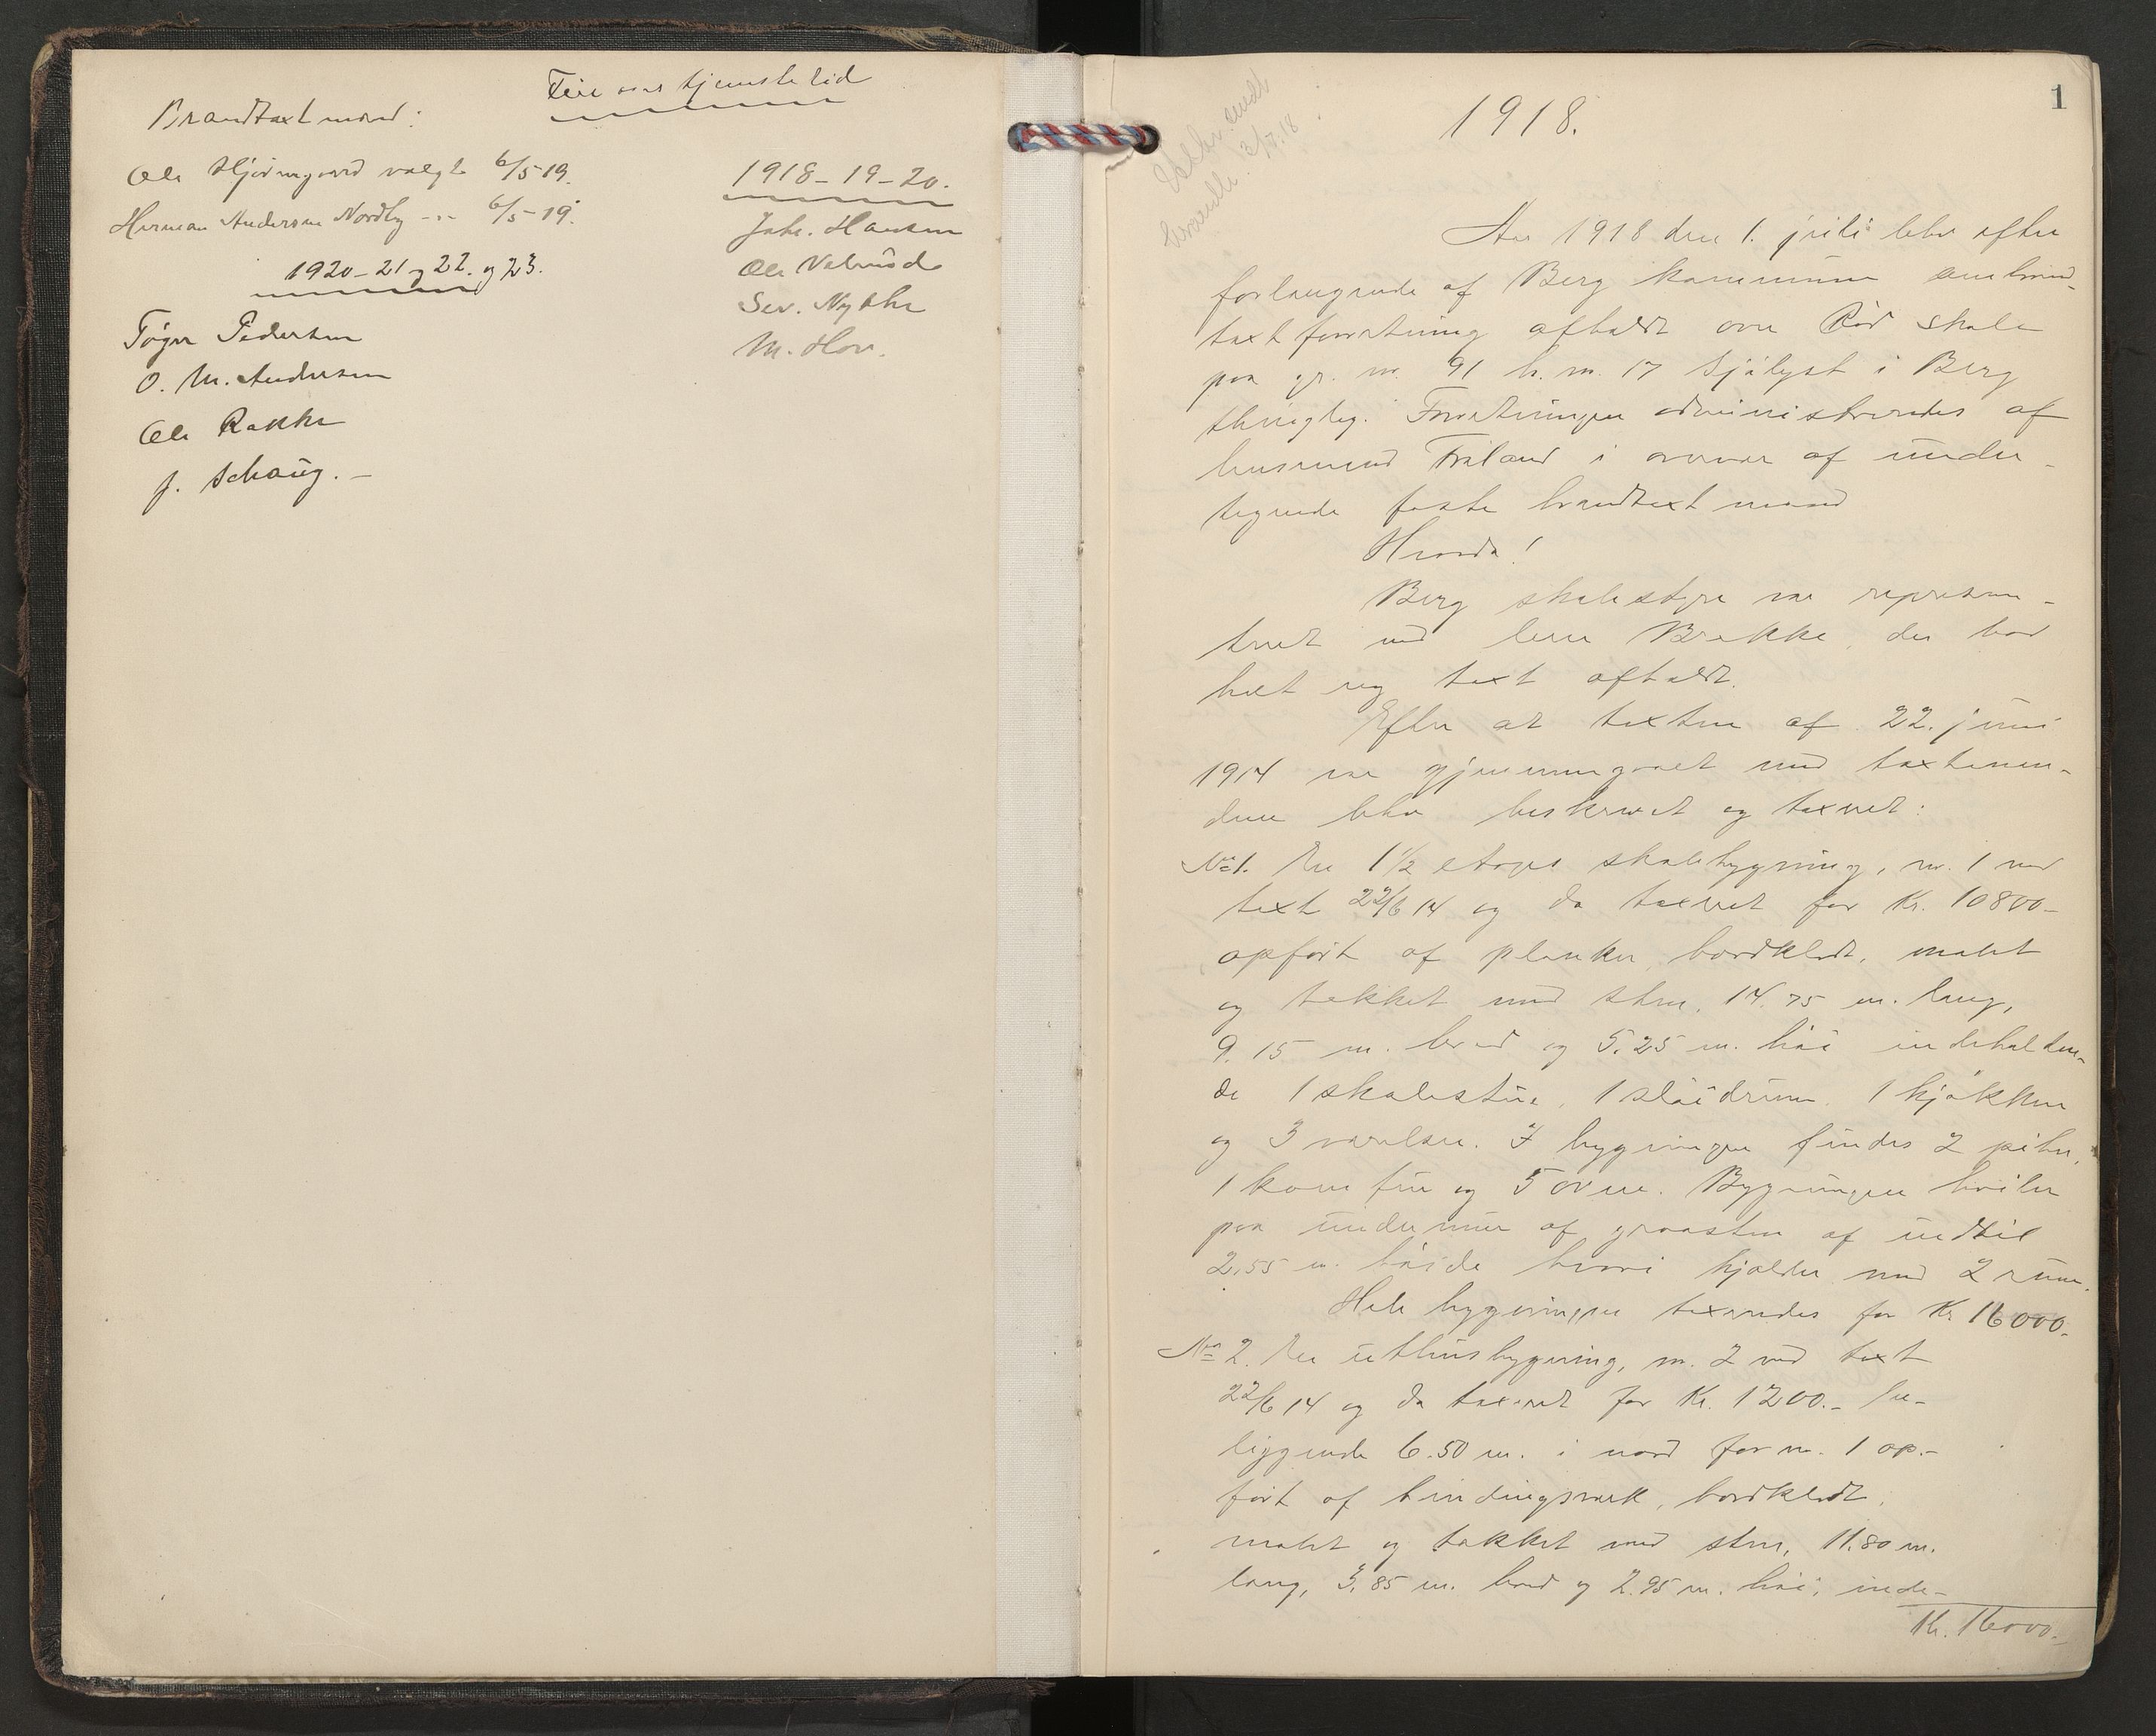 Brandtaxtmænd:
Fire aars tjenestetid
Ole Hjørnegaard valgt 6/5 19.
Herman Andersen Nordby -"- 6/5-19.
1920-21 og 22. og 23.
Tøger Pedersen
O. M. Andersen
Ole Rakke
J. Schaug.-
1918-19-20.
Johs. Hansen
Ole
Sev.
M. Hov.
1
1918.
3/7.18
Aar 1918 den 1. juli blev efter
forlangende af Berg kommune ombrand-
taxtforretning afholdt over Rød skole
paa gr. nr. 91 br. nr. 17 Sjölyst i Berg
thinglag. Forretningen administreredes af
lensmand i overvær af under-
tegnede faste brandtaxtmænd
Hvorda!
Berg skolestyre var represen-
teret ved lærer Brekke, der har
bedt sig taxt afholdt.
Efter at taxten af 22. juni
1914 var gjennemgaaet med taxtmæn-
dene blev beskrevet og taxeret:
No 1. En 1 1/2 etages skolebygning, nr. 1 ved
taxt 22/6 14 og da taxeret for Kr. 10800-
opført af planker, bordklædt, malet
og tækket med sten, 14.75 m. lang,
9.15 m. bred og 5.25 m. høi indeholden-
de 1 skolestue, 1 sløidrum, 1 kjøkken
og 3 værelser. I bygningen findes 2 piber,
1 komfur og 5 ovne. Bygningen hviler
paa undermur af graasten af indtil
2,55 m. høide hvori kjælder med 2 rum.
Hele bygningen taxeredes for Kr 16000.-
No 2. En uthusbygning, nr. 2 ved taxt
22/6 14 og da taxeret for Kr. 1200.- be-
liggende 6.50 m. i nord for nr. 1 op-
ført af bindingsværk, bordklædt,
malet og tækket med sten, 11.80 m.
lang, 3.85 m. bred og 2.95 m. høi, inde-
Kr. 16000.-